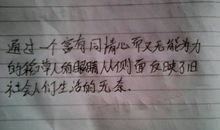 通过一个富有同情心而又无能为力
的称谓人的眼睛从侧面反映了旧
社会人们生活的无奈.